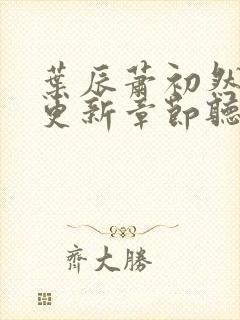 葉辰蕭初然
更新章節聽
齊大勝